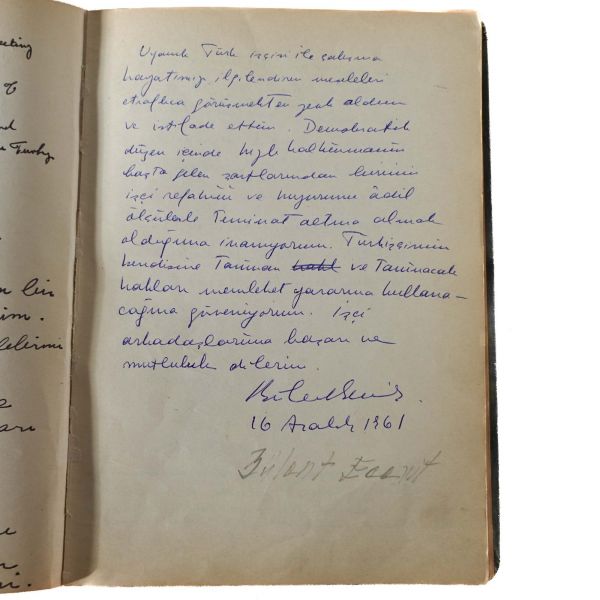 eeting
of
nd
Turkey
n bir
im.
lelerimi
e
arı
e
n
i.
Uyanık Türk işçisi ile çalışma
hayatımızı ilgilendiren meseleleri
etraflıca görüşmekten zevk aldım
ve istifade ettim. Demokratik
düzen içinde hızlı kalkınmanın
başta gelen şartlarından birinin
işçi refahını ve huzurunu âdil
ölçülerle teminat altına almak
olduğuna inanıyorum. Türk işçisinin
kendisine tanınan ve tanınacak
hakları memleket yararına kullana-
cağına güveniyorum. İşçi
arkadaşlarıma başarı ve
mutluluk dilerim.
16 Aralık 1961
Bülent Ecevit